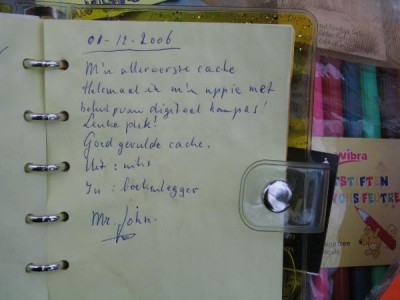 01-12-2006
M'n allereerste cache
Helemaal in m'n uppie met
behulp van digitaal kompas!
Leuke plek!
Goed gevulde cache.
Uit: niks
In: boekenlegger
Mr. John.
vibra
TSTIFTEN
ONS FEUTRE